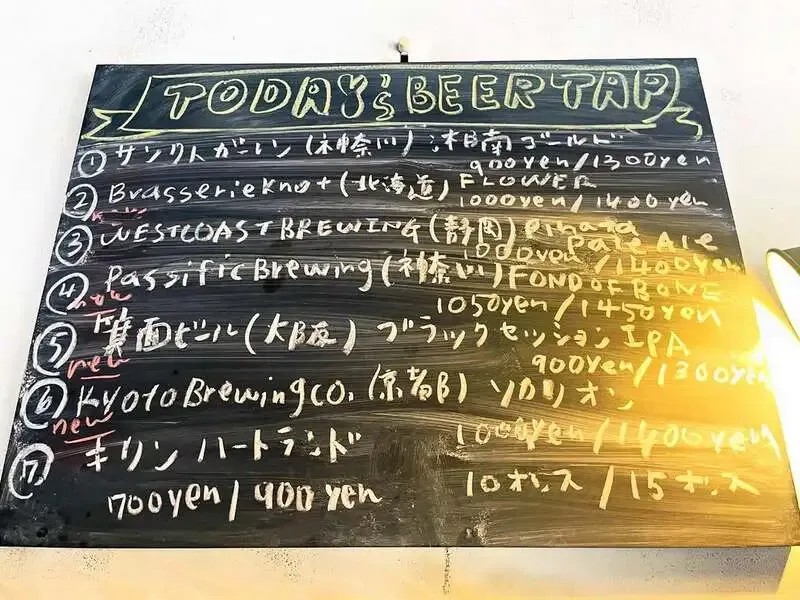 TODAY's BEER TAP
① サンクトガーレン (神奈川) 湘南ゴールド
900yen/1300yen
② Brasserie Knot (北海道) FLOWER
1000yen/1400yen
③ WESTCOAST BREWING (静岡) Pinata
Pale Ale
1000yen/1400yen
④ Passific Brewing (神奈川) FOND OF BONE
new
1050yen/1450yen
⑤ 箕面ビール (大阪) ブラックセッションIPA
new
900yen/1300yen
⑥ Kyoto Brewing co. (京都) ソカリオン
new
1000yen/1400yen
⑦ キリン ハートランド
700yen/900yen 10オンス/15オンス